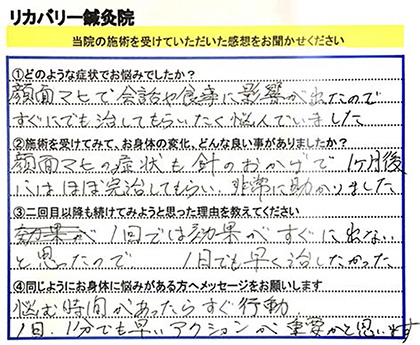 リカバリー鍼灸院
当院の施術を受けていただいた感想をお聞かせください
①どのような症状でお悩みでしたか？
顔面マヒで会話や食事に影響が出たので
すぐにでも治してもらいたく悩んでいました
②施術を受けてみて、お身体の変化、どんな良い事がありましたか？
顔面マヒの症状も針のおかげで 1ヶ月後
にはほぼ完治してもらい、非常に助かりました
③二回目以降も続けてみようと思った理由を教えてください
効果が 1回では効果がすぐに出ない
と思ったので 1日でも早く治したかった
④同じようにお身体に悩みがある方へメッセージをお願いします
悩む時間があったらすぐ行動
1日、1分でも早いアクションが重要かと思います